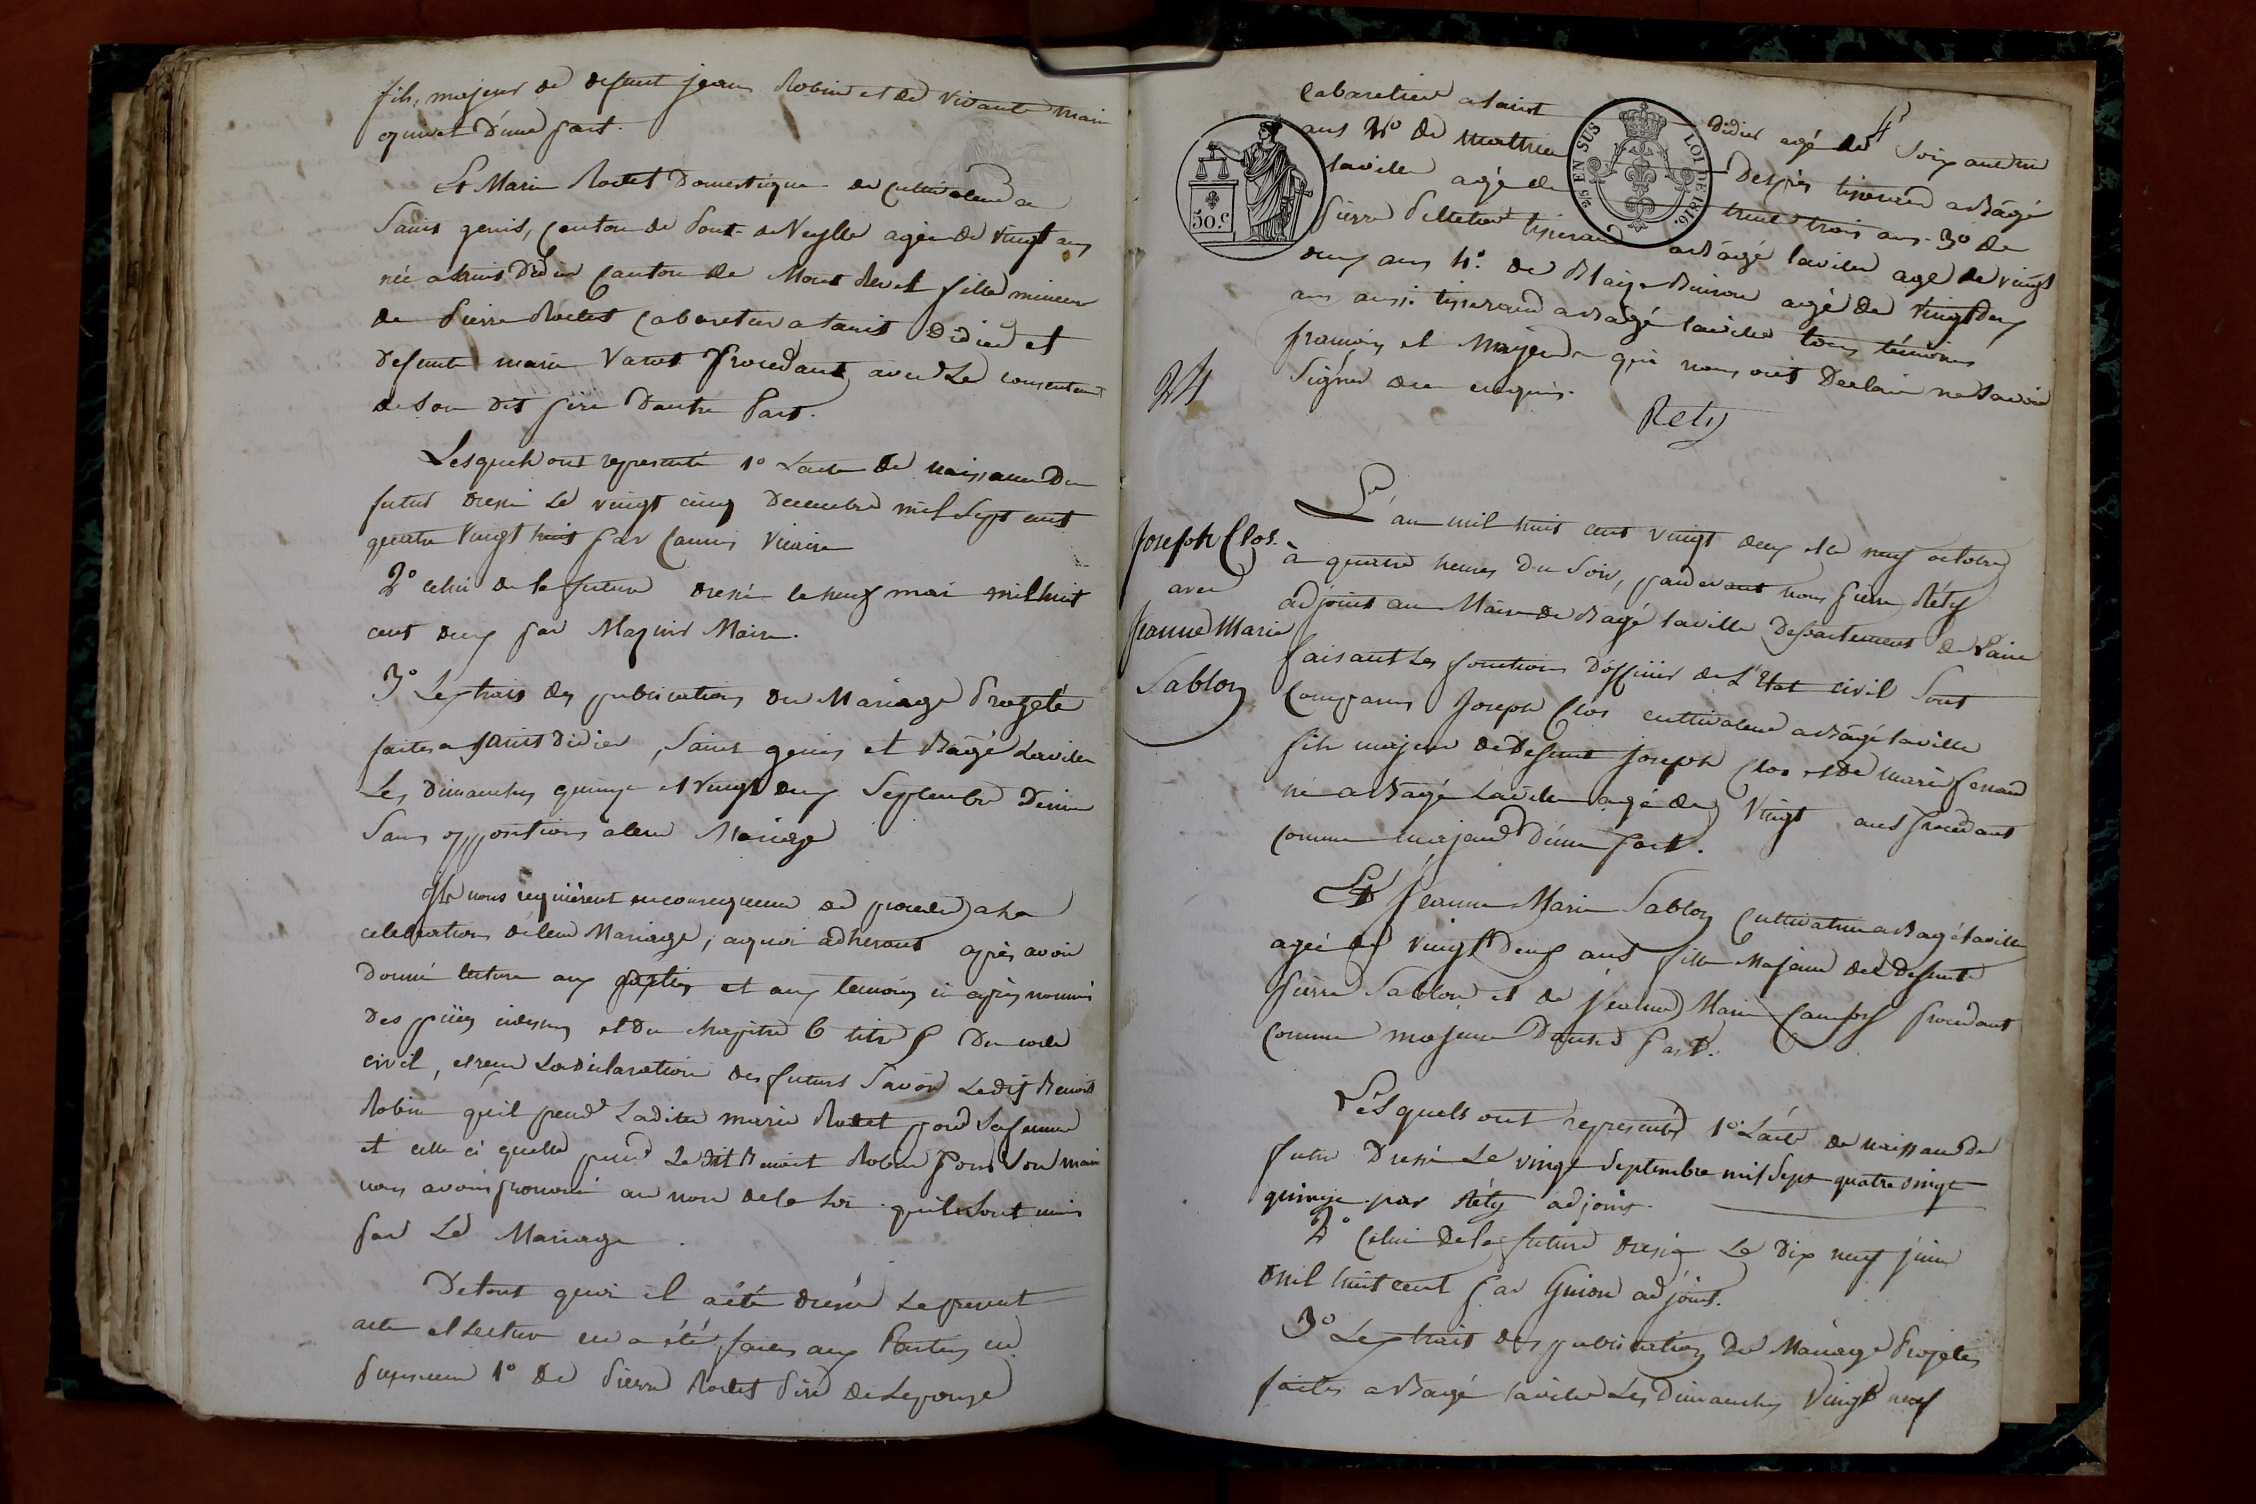 fils majeur de defunt jean Robin et de vivante marie
d'une part.
Et Marie Rodet Domestique de cultivateur a
Saint genis, Canton de Pont de Veylle agée de vingt ans
née a saint Didier Canton de Mont Revel fille mineur
de Pierre Rodet Cabaretier a saint Didier et
defunte marie Varot Procedant avec Le consentement
de son dit père D'autre Part.
Lesquels ont representé 1° L'acte de naissance Du
futur dressé Le vingt cinq Decembre mil Sept cent
quatre Vingt huit par Vicaire
2° celui de la future dressé le neuf mai mil huit
cent deux par Maire.
3° L'extrait des publications du Mariage Projeté
faites a saint Didier, Saint genis et Bâgé Laville
Les Dimanches quinze et vingt deux Septembre Dernier
Sans oppositions a leur Mariage
Ils nous requièrent en consequence de proceder a la
celebration de leur Mariage; a quoi adherant après avoir
donné lecture aux parties et aux temoins ci après nommés
Des pièces et du chapitre 6 titre 5 Du code
civil, et reçu La declaration des futurs Savoir Ledit Benoit
Robin qu'il prend Ladite marie Rodet pour Sa femme
et celle ci quelle prend Le dit Benoit Robin Pour Son mari
nous avons prononcé au nom de la loi qu'ils sont unis
par Le Mariage
De tout quoi il a été dressé Le present
acte et Lecture en a été faites aux Parties en
presence 1° De Pierre Rodet Père de Lepouse
Cabaretier a saint Didier agé de Soixante
ans 2° de Mathieu tisserand a Bâgé
laville agé de trente trois ans. 3° de
Pierre Pelletier tisserand a Bâgé laville agé de vingt
deux ans 4° de Blaize Buiron agé de vingt deux
ans aussi tisserand a Bâgé laville tous témoins
français et Majeurs qui nous ont Declaré ne Savoir
Signer de ce enquis.
Rety
24
Joseph Clos.
avec
Jeanne Marie
Sablon
L'an mil huit cent vingt deux et le neuf octobre
à quatre heures du Soir, pardevant nous Pierre Réty
adjoint au Maire de Bagé laville Departement de Lain
faisant Les fonctions D'officier de L'Etat civil Sont
Comparus Joseph Clos cultivateur a Bâgé laville
fils majeur de Defunt Joseph Clos et de marie
né a Bagé Laville agé de Vingt ans procedant
comme majeur D'une part.
Et Jeanne Marie Sablon Cultivatrice a Bagé laville
agée de vingt Deux ans fille Majeure de Defunt
Pierre Sablon et de Jeanne Marie procedant
comme majeure D'autre part.
Lésquels ont representé 1° L'acte de naissance du
futur Dressé Le vingt Septembre mil Sept quatre vingt
quinze par Réty adjoint.
2° Celui de la future dressé Le Dix neuf juin
mil huit cent par Guion adjoint.
3° L'extrait des publications Du Mariage Projetés
faites a Bagé laville Les Dimanches Vingt neuf
50 c.
2/10 EN SUS
LOI DE 1816.